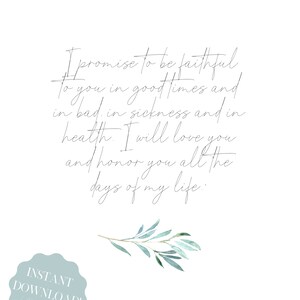 I promise to be faithful
to you in good times and
in bad, in sickness and in
health. I will love you
and honor you all the
days of my life.
INSTANT
DOWNLOAD